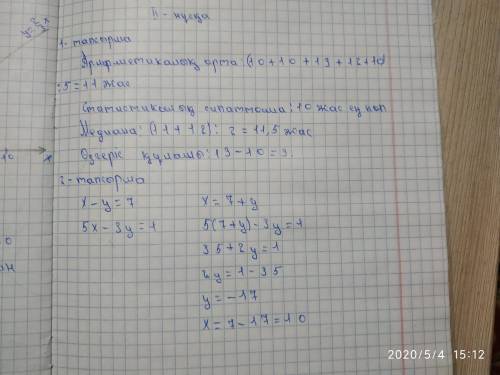 y=2x
II - нұсқа
1 - тапсырма
Арифметикалық орта: (10+10+13+12+10)
:5=11 жас
Статистикалық сипаттама: 10 жас ең көп
Медиана: (11+12): 2=11,5 жас
Өзгеріс құлашы: 13-10=3.
2 - тапсырма
x-y=7 x=7+y
5x-3y=1 5(7+y)-3y=1
35+2y=1
2y=1-35
y=-17
x=7-17=10
10
x
2020/5/4 15:12